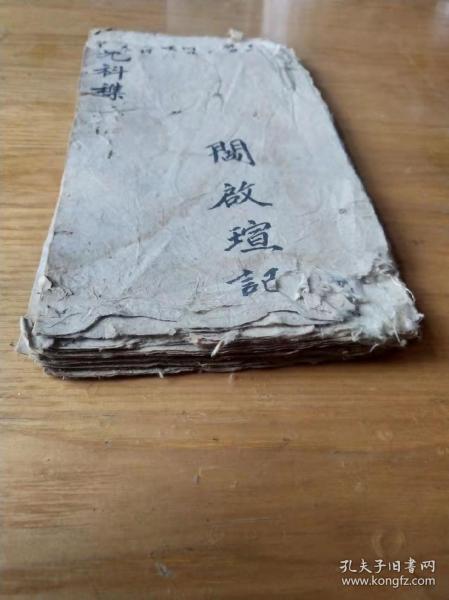 兒科襍
閻啟瑄記
孔夫子旧书网
www.kongfz.com